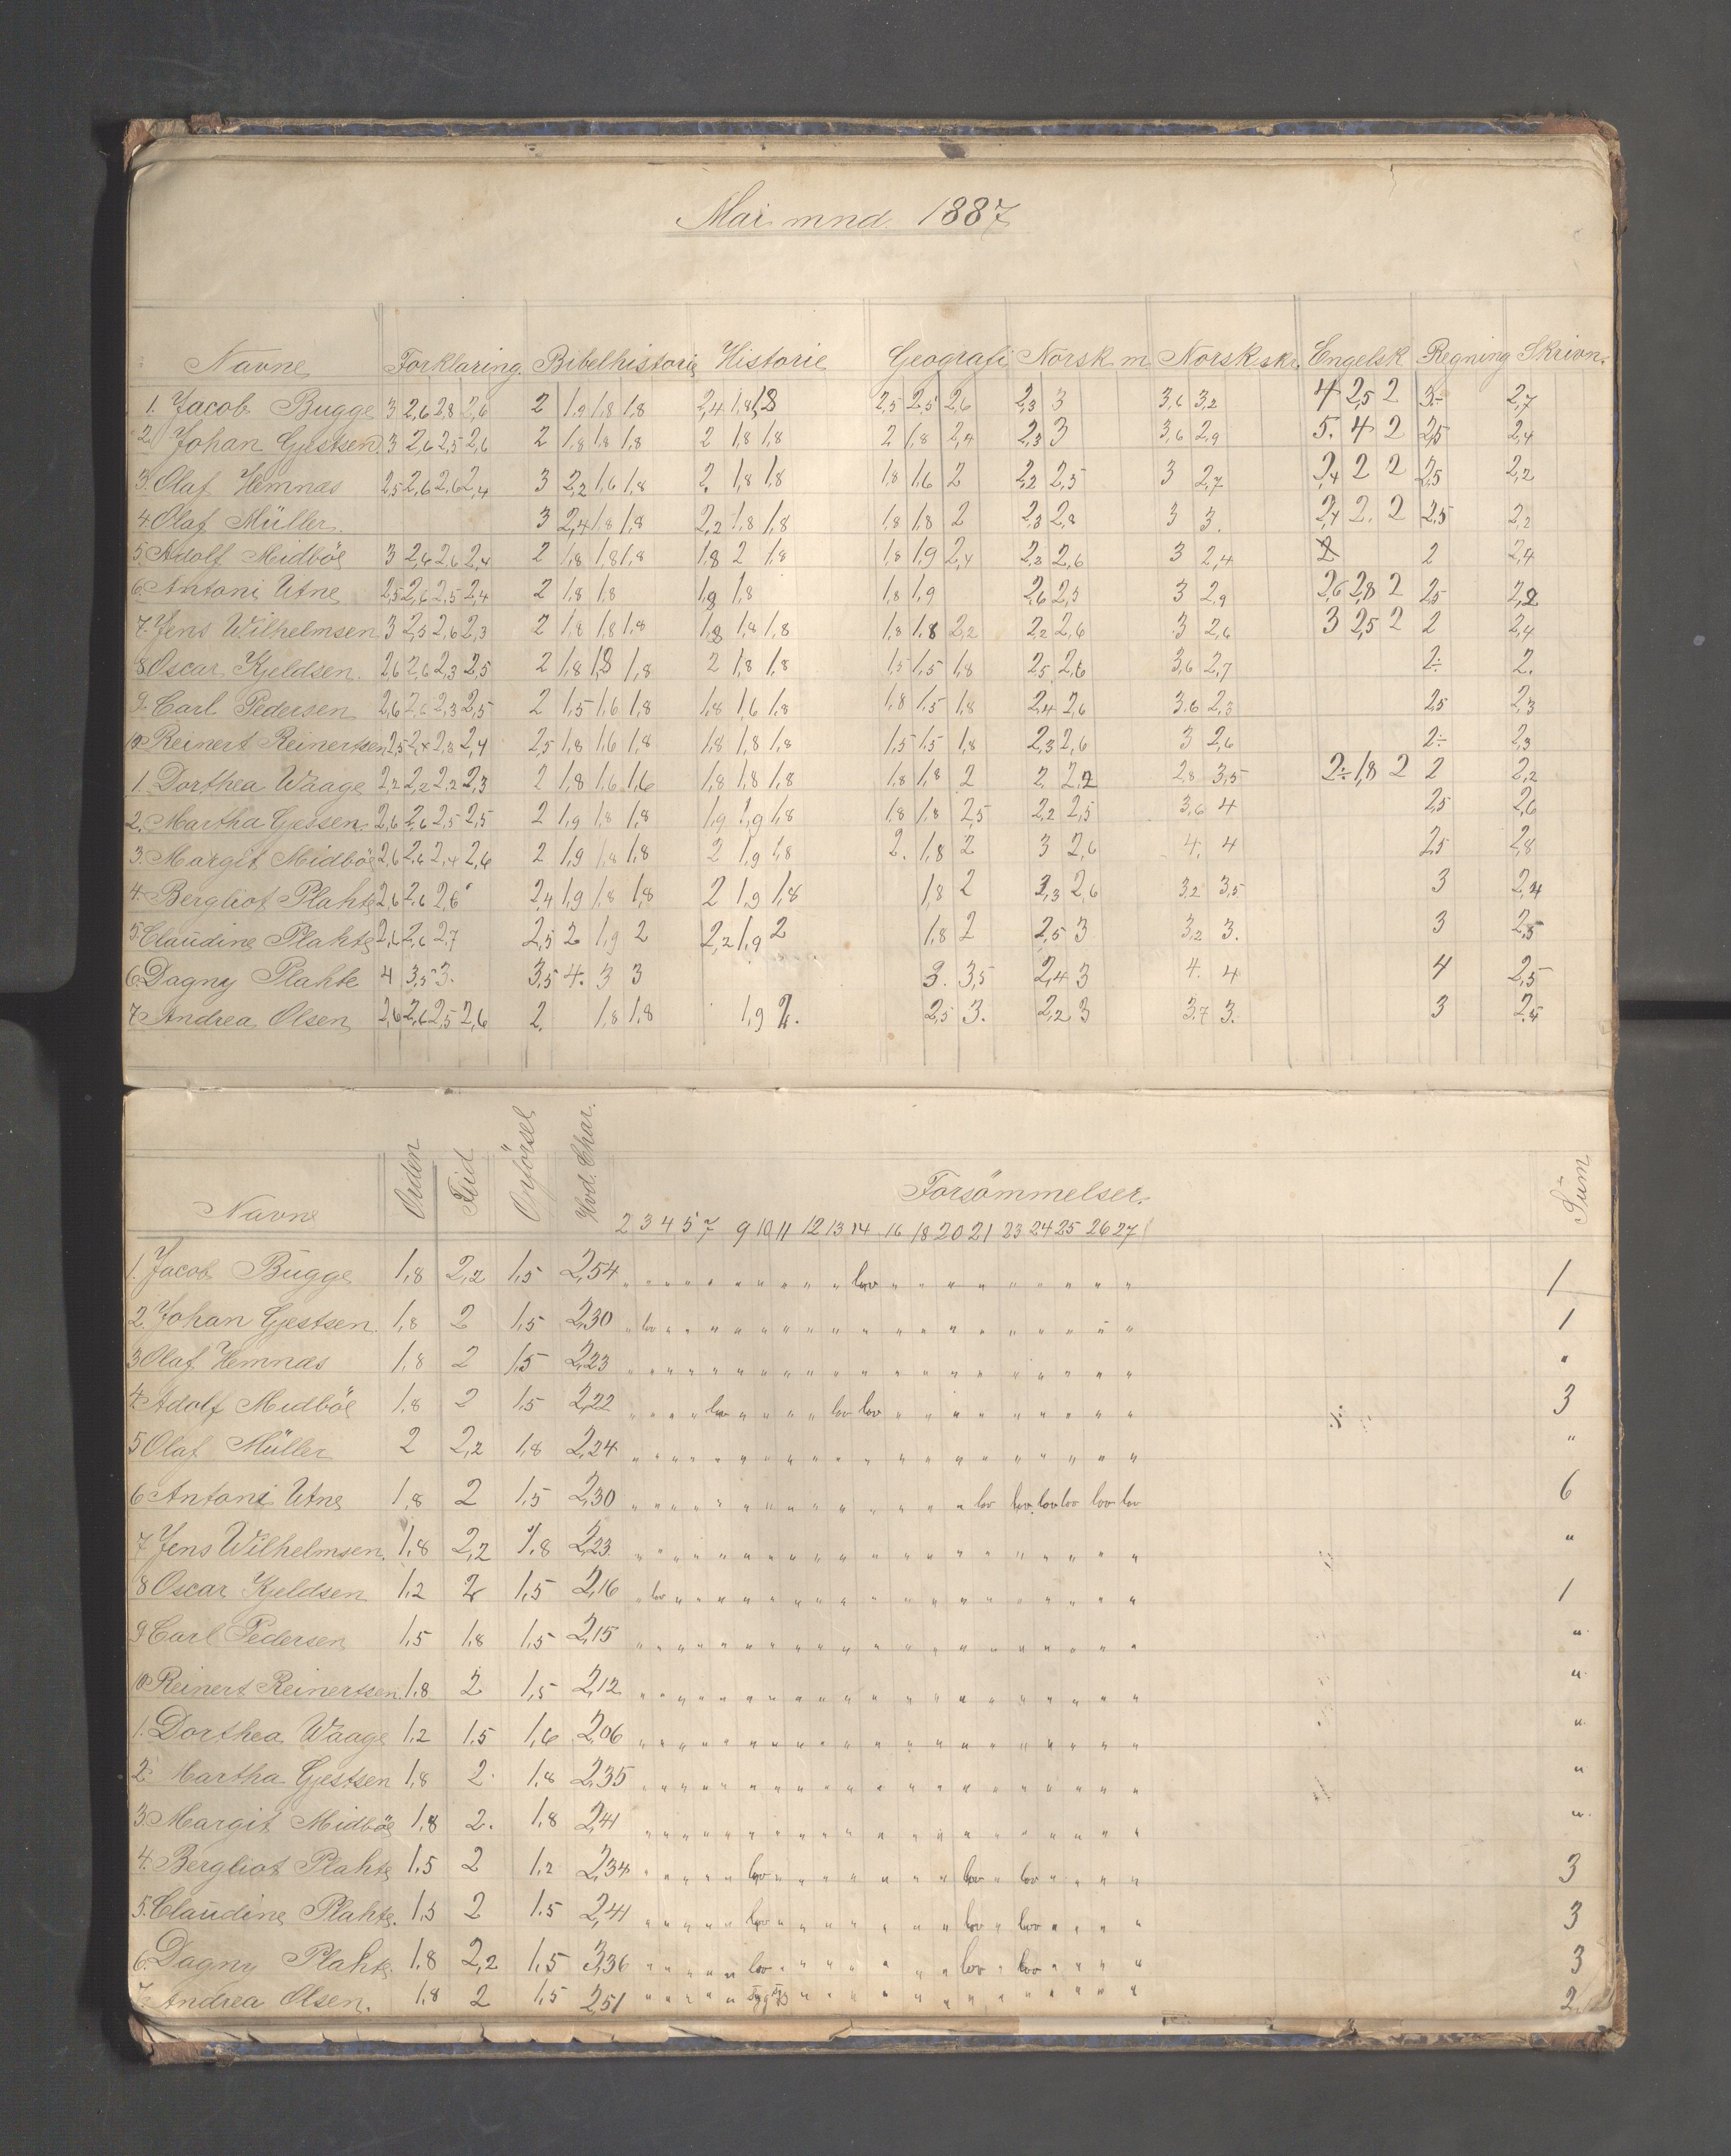 Mai mnd. 1887
Navne Forklaring. Bibelhistorie Historie Geografi Norsk m. Norsk skr. Engelsk Regning Skrivn.
1. Jacob Bugge 3 2,6 2,8 2,6 2 1,9 1,8 1,8 2,4 1,8 1,8 2,5 2,5 2,6 2,3 3 3,6 3,2 4 2,5 2 3÷ 2,7
2. Johan Gjestsen. 3 2,6 2,5 2,6 2 1,8 1,8 1,8 2 1,8 1,8 2 1,8 2,4 2,3 3 3,6 2,9 5. 4 2 2,5 2,4
3. Olaf Hemnæs 2,5 2,6 2,6 2,4 3 2,2 1,6 1,8 2. 1,8 1,8 1,8 1,6 2 2,2 2,5 3 2,7 2,4 2 2 2,5 2,2
4. Olaf Müller. 3 2,4 1,8 1,8 2,2 1,8 1,8 1,8 1,8 2 2,3 2,8 3 3. 2,4 2. 2 2,5 2,2
5. Adolf Midböe 3 2,6 2,6 2,4 2 1,8 1,8 1,8 1,8 2 1,8 1,8 1,9 2,4 2,2 2,6 3 2,4 2 2 2,4
6. Antoni Utne 2,5 2,6 2,5 2,4 2 1,8 1,8 1,8 1,8 1,8 1,9 2,6 2,5 3 2,9 2,6 2,8 2 2,5 2,2
7. Jens Wilhelmsen 3 2,5 2,6 2,3 2 1,8 1,8 1,8 1,8 1,8 1,8 1,8 1,8 2,2 2,2 2,6 3 2,6 3 2,5 2 2 2,4
8. Oscar Kjeldsen. 2,6 2,6 2,3 2,5 2 1,8 1,8 1,8 2 1,8 1,8 1,5 1,5 1,8 2,5 2,6 3,6 2,7 2÷ 2.
9. Carl Pedersen 2,6 2,6 2,3 2,5 2 1,5 1,6 1,8 1,8 1,6 1,8 1,8 1,5 1,8 2,4 2,6 3,6 2,3 2,5 2,3
10. Reinert Reinertsen 2,5 2,4 2,3 2,4 2,5 1,8 1,6 1,8 1,8 1,8 1,8 1,5 1,5 1,8 2,3 2,6 3 2,6 2÷ 2,3
1. Dorthea Waage 2,2 2,2 2,2 2,3 2 1,8 1,6 1,6 1,8 1,8 1,8 1,8 1,8 2 2 2,2 2,8 3,5 2÷ 1,8 2 2 2,2
2. Martha Gjessen 2,6 2,6 2,5 2,5 2 1,9 1,8 1,8 1,9 1,9 1,8 1,8 1,8 2,5 2,2 2,5 3,6 4 2,5 2,6
3. Margit Midböe 2,6 2,6 2,4 2,6 2 1,9 1,8 1,8 2 1,9 1,8 2. 1,8 2 3 2,6 4, 4 2,5 2,8
4. Bergliot Plahte 2,6 2,6 2,6 2,4 1,9 1,8 1,8 2 1,9 1,8 1,8 2 2,3 2,6 3,2 3,5 3 2,4
5. Claudine Plahte 2,6 2,6 2,7 2,5 2 1,9 2 2,2 1,9 2 1,8 2 2,5 3 3,2 3. 3 2,5
6. Dagny Plahte 4 3,5 3. 3,5 4. 3 3 3. 3,5 2,4 3 4. 4 4 2,5
7. Andrea Olsen 2,6 2,6 2,5 2,6 2. 1,8 1,8 1,9 2. 2,5 3. 2,2 3 3,7 3. 3 2,4
Navne Orden Flid Opførsel Hvd. Char. Forsömmelser. Sum
2 3 4 5 7 9 10 11 12 13 14 16 18 20 21 23 24 25 26 27
1. Jacob Bugge 1,8 2,2 1,5 2,54 lov 1
2. Johan Gjestsen. 1,8 2 1,5 2,30 lov 1
3 Olaf Hemnæs 1,8 2 1,5 2,23 "
4. Adolf Midböe 1,8 2 1,5 2,22 lov lov lov 3
5 Olaf Müller 2 2,2 1,8 2,24 "
6 Antoni Utne 1,8 2 1,5 2,30 lov lov lov lov lov lov 6
7 Jens Wilhelmsen. 1,8 2,2 1,8 2,23 "
8 Oscar Kjeldsen 1,2 2 1,5 2,16 lov 1
9 Carl Pedersen 1,5 1,8 1,5 2,15 "
10 Reinert Reinertsen. 1,8 2 1,5 2,12 "
1. Dorthea Waage 1,2 1,5 1,6 2,06 "
2. Martha Gjestsen 1,8 2. 1,8 2,35 "
3. Margit Midböe 1,8 2. 1,8 2,41 "
4. Bergliot Plahte 1,5 2 1,2 2,34 lov lov lov 3
5. Claudine Plahte. 1,5 2 1,5 2,41 lov lov lov 3
6. Dagny Plahte. 1,8 2,2 1,5 3,36 lov lov lov 3
7. Andrea Olsen. 1,8 2 1,5 2,51 2.